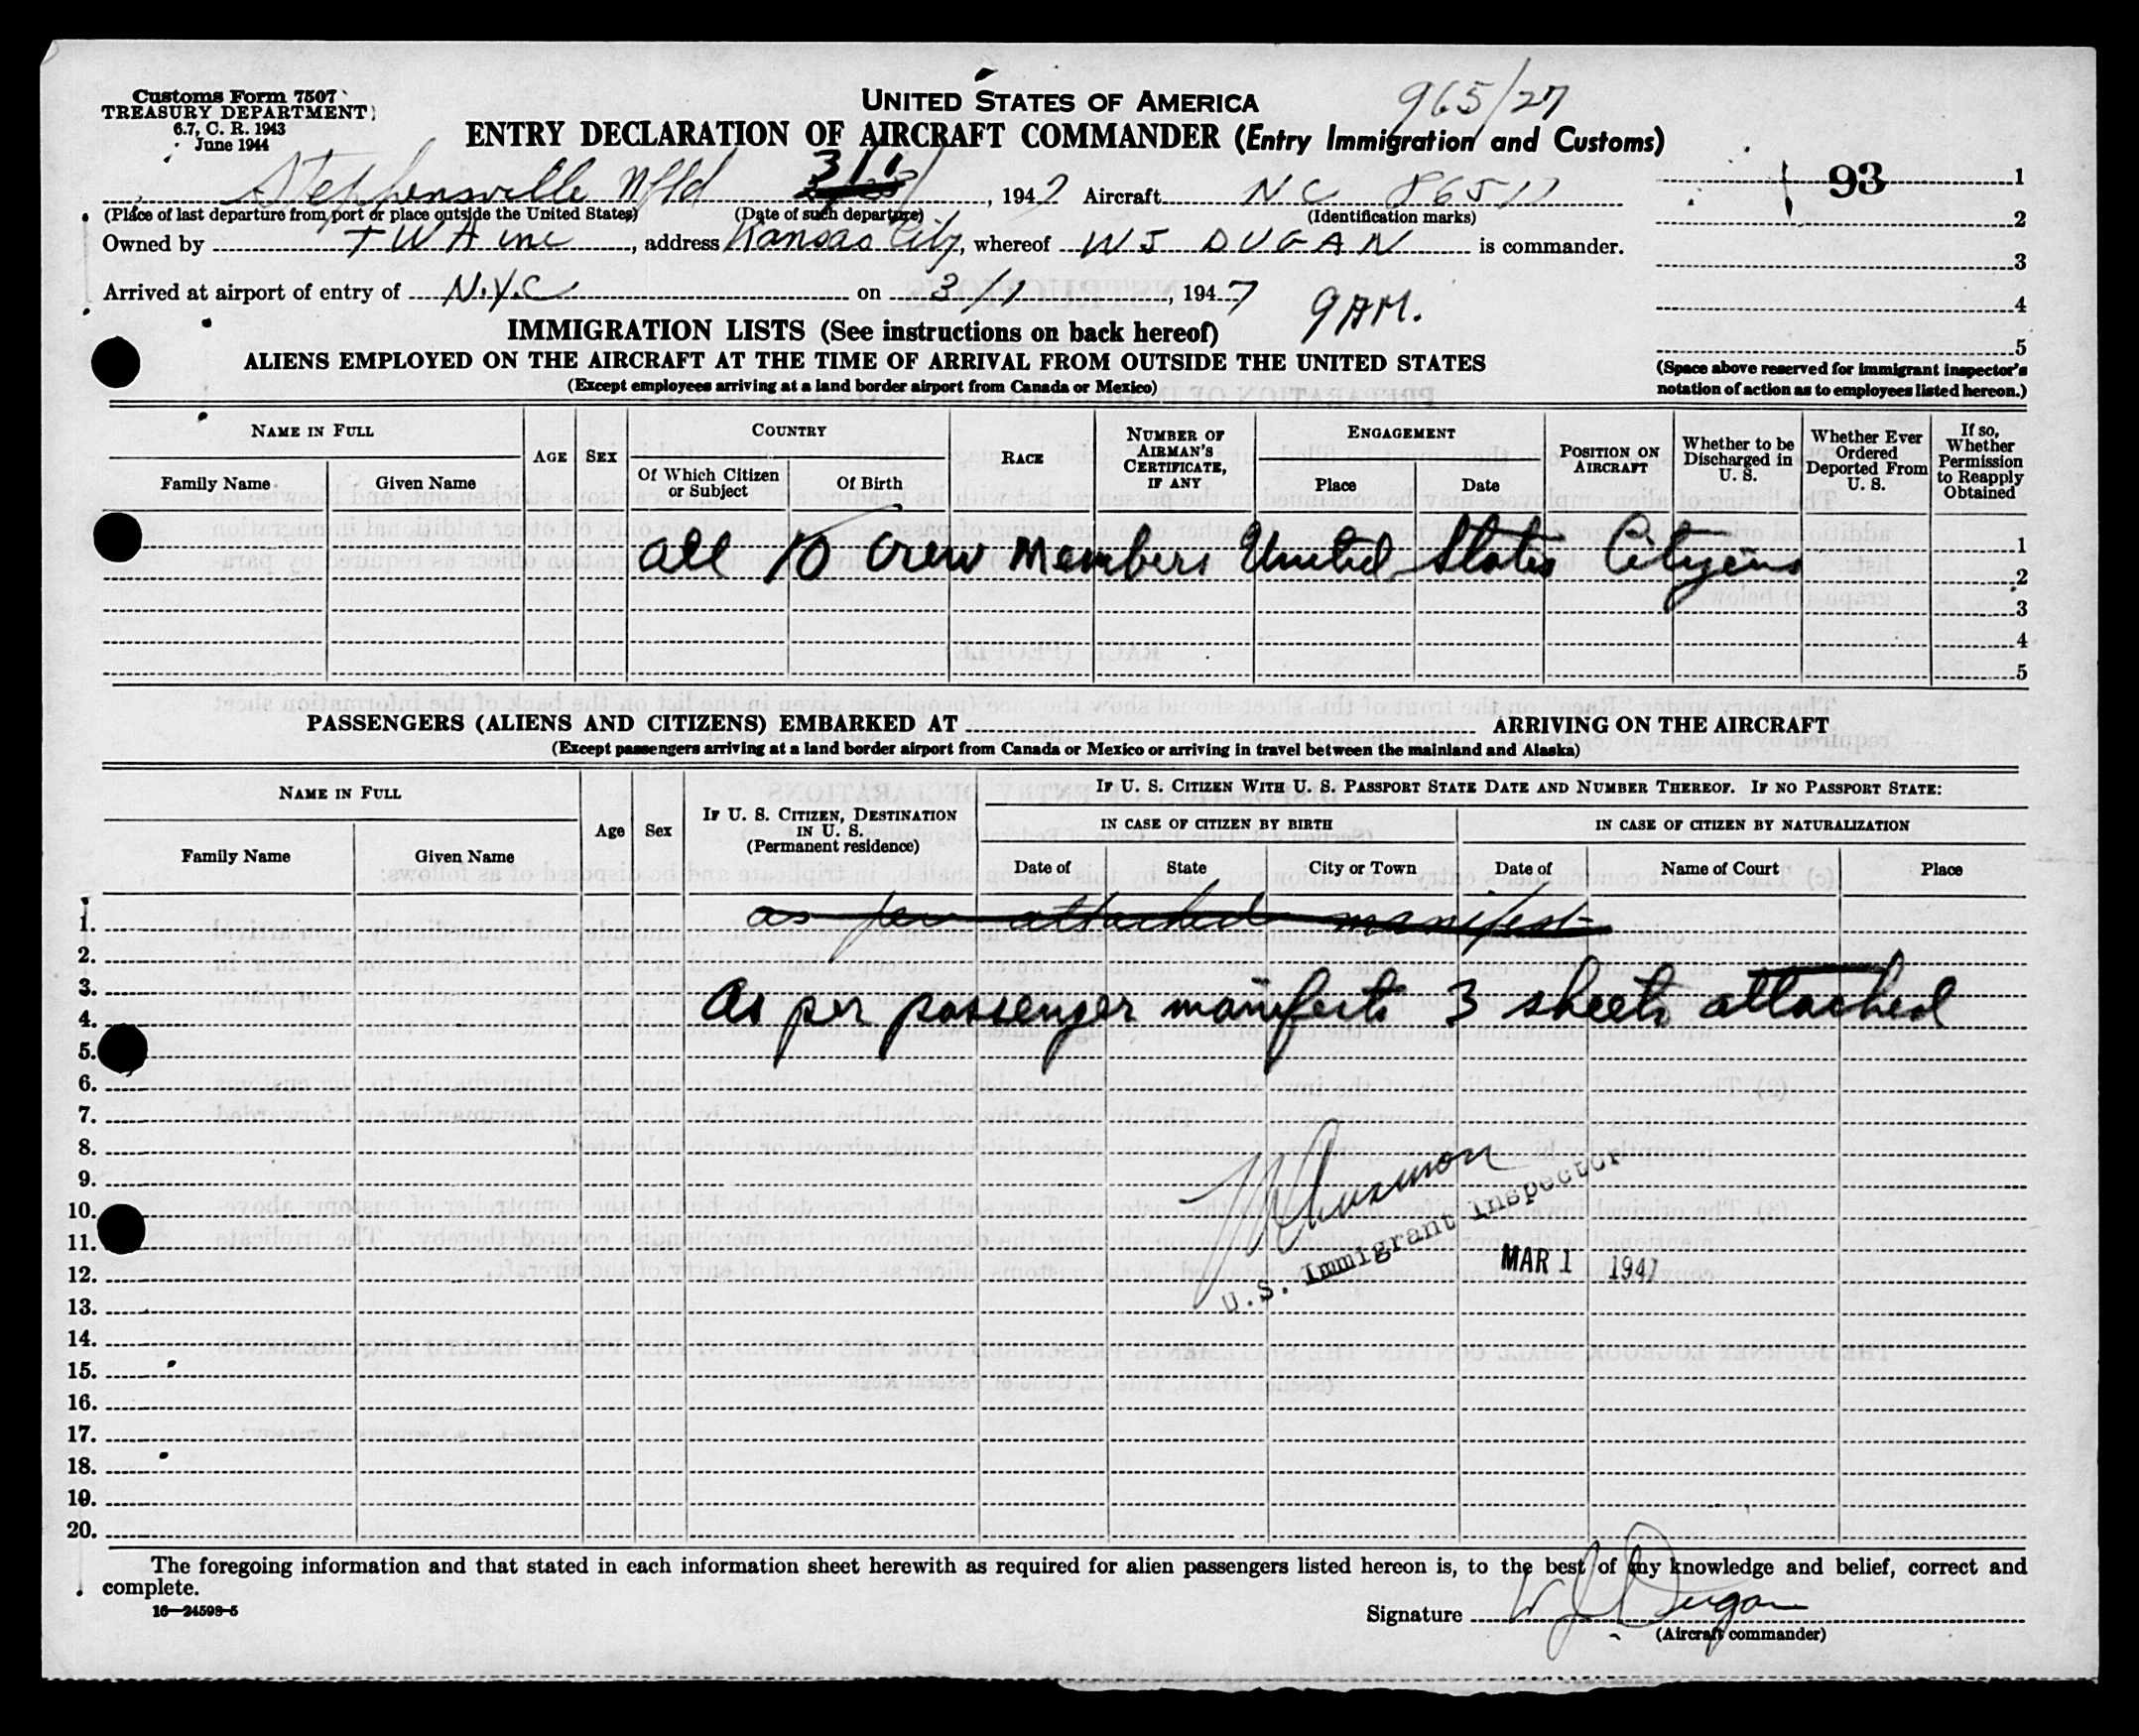 Customs Form 7507
TREASURY DEPARTMENT
6.7, C. R. 1943
June 1944
UNITED STATES OF AMERICA
965/27
ENTRY DECLARATION OF AIRCRAFT COMMANDER (Entry Immigration and Customs)
93 1
2
3
4
5
(Space above reserved for immigrant inspector's notation of action as to employees listed hereon.)
Stephensville Nfld 3/1, 1947 Aircraft NC 86511
(Place of last departure from port or place outside the United States) (Date of such departure) (Identification marks)
Owned by TWA inc, address Kansas City, whereof WJ DUGAN is commander.
Arrived at airport of entry of N.Y.C on 3/1, 1947 9 AM.
IMMIGRATION LISTS (See instructions on back hereof)
ALIENS EMPLOYED ON THE AIRCRAFT AT THE TIME OF ARRIVAL FROM OUTSIDE THE UNITED STATES
(Except employees arriving at a land border airport from Canada or Mexico)
NAME IN FULL
Family Name
Given Name
AGE
SEX
COUNTRY
Of Which Citizen or Subject
Of Birth
RACE
NUMBER OF AIRMAN'S CERTIFICATE, IF ANY
ENGAGEMENT
Place
Date
POSITION ON AIRCRAFT
Whether to be Discharged in U. S.
Whether Ever Ordered Deported From U. S.
If so, Whether Permission to Reapply Obtained
all 10 Crew Members United States Citizens 1
2
3
4
5
PASSENGERS (ALIENS AND CITIZENS) EMBARKED AT ARRIVING ON THE AIRCRAFT
(Except passengers arriving at a land border airport from Canada or Mexico or arriving in travel between the mainland and Alaska)
NAME IN FULL
Family Name
Given Name
Age
Sex
IF U. S. CITIZEN, DESTINATION IN U. S.
(Permanent residence)
IF U. S. CITIZEN WITH U. S. PASSPORT STATE DATE AND NUMBER THEREOF. IF NO PASSPORT STATE:
IN CASE OF CITIZEN BY BIRTH
Date of
State
City or Town
IN CASE OF CITIZEN BY NATURALIZATION
Date of
Name of Court
Place
1. as per attached manifest
2.
3. As per passenger manifests 3 sheets attached
4.
5.
6.
7.
8.
9.
10.
11.
U.S. Immigrant Inspector
MAR 1 1947
12.
13.
14.
15.
16.
17.
18.
19.
20.
The foregoing information and that stated in each information sheet herewith as required for alien passengers listed hereon is, to the best of my knowledge and belief, correct and
complete.
16—24598-5
Signature WJ Dugan
(Aircraft commander)